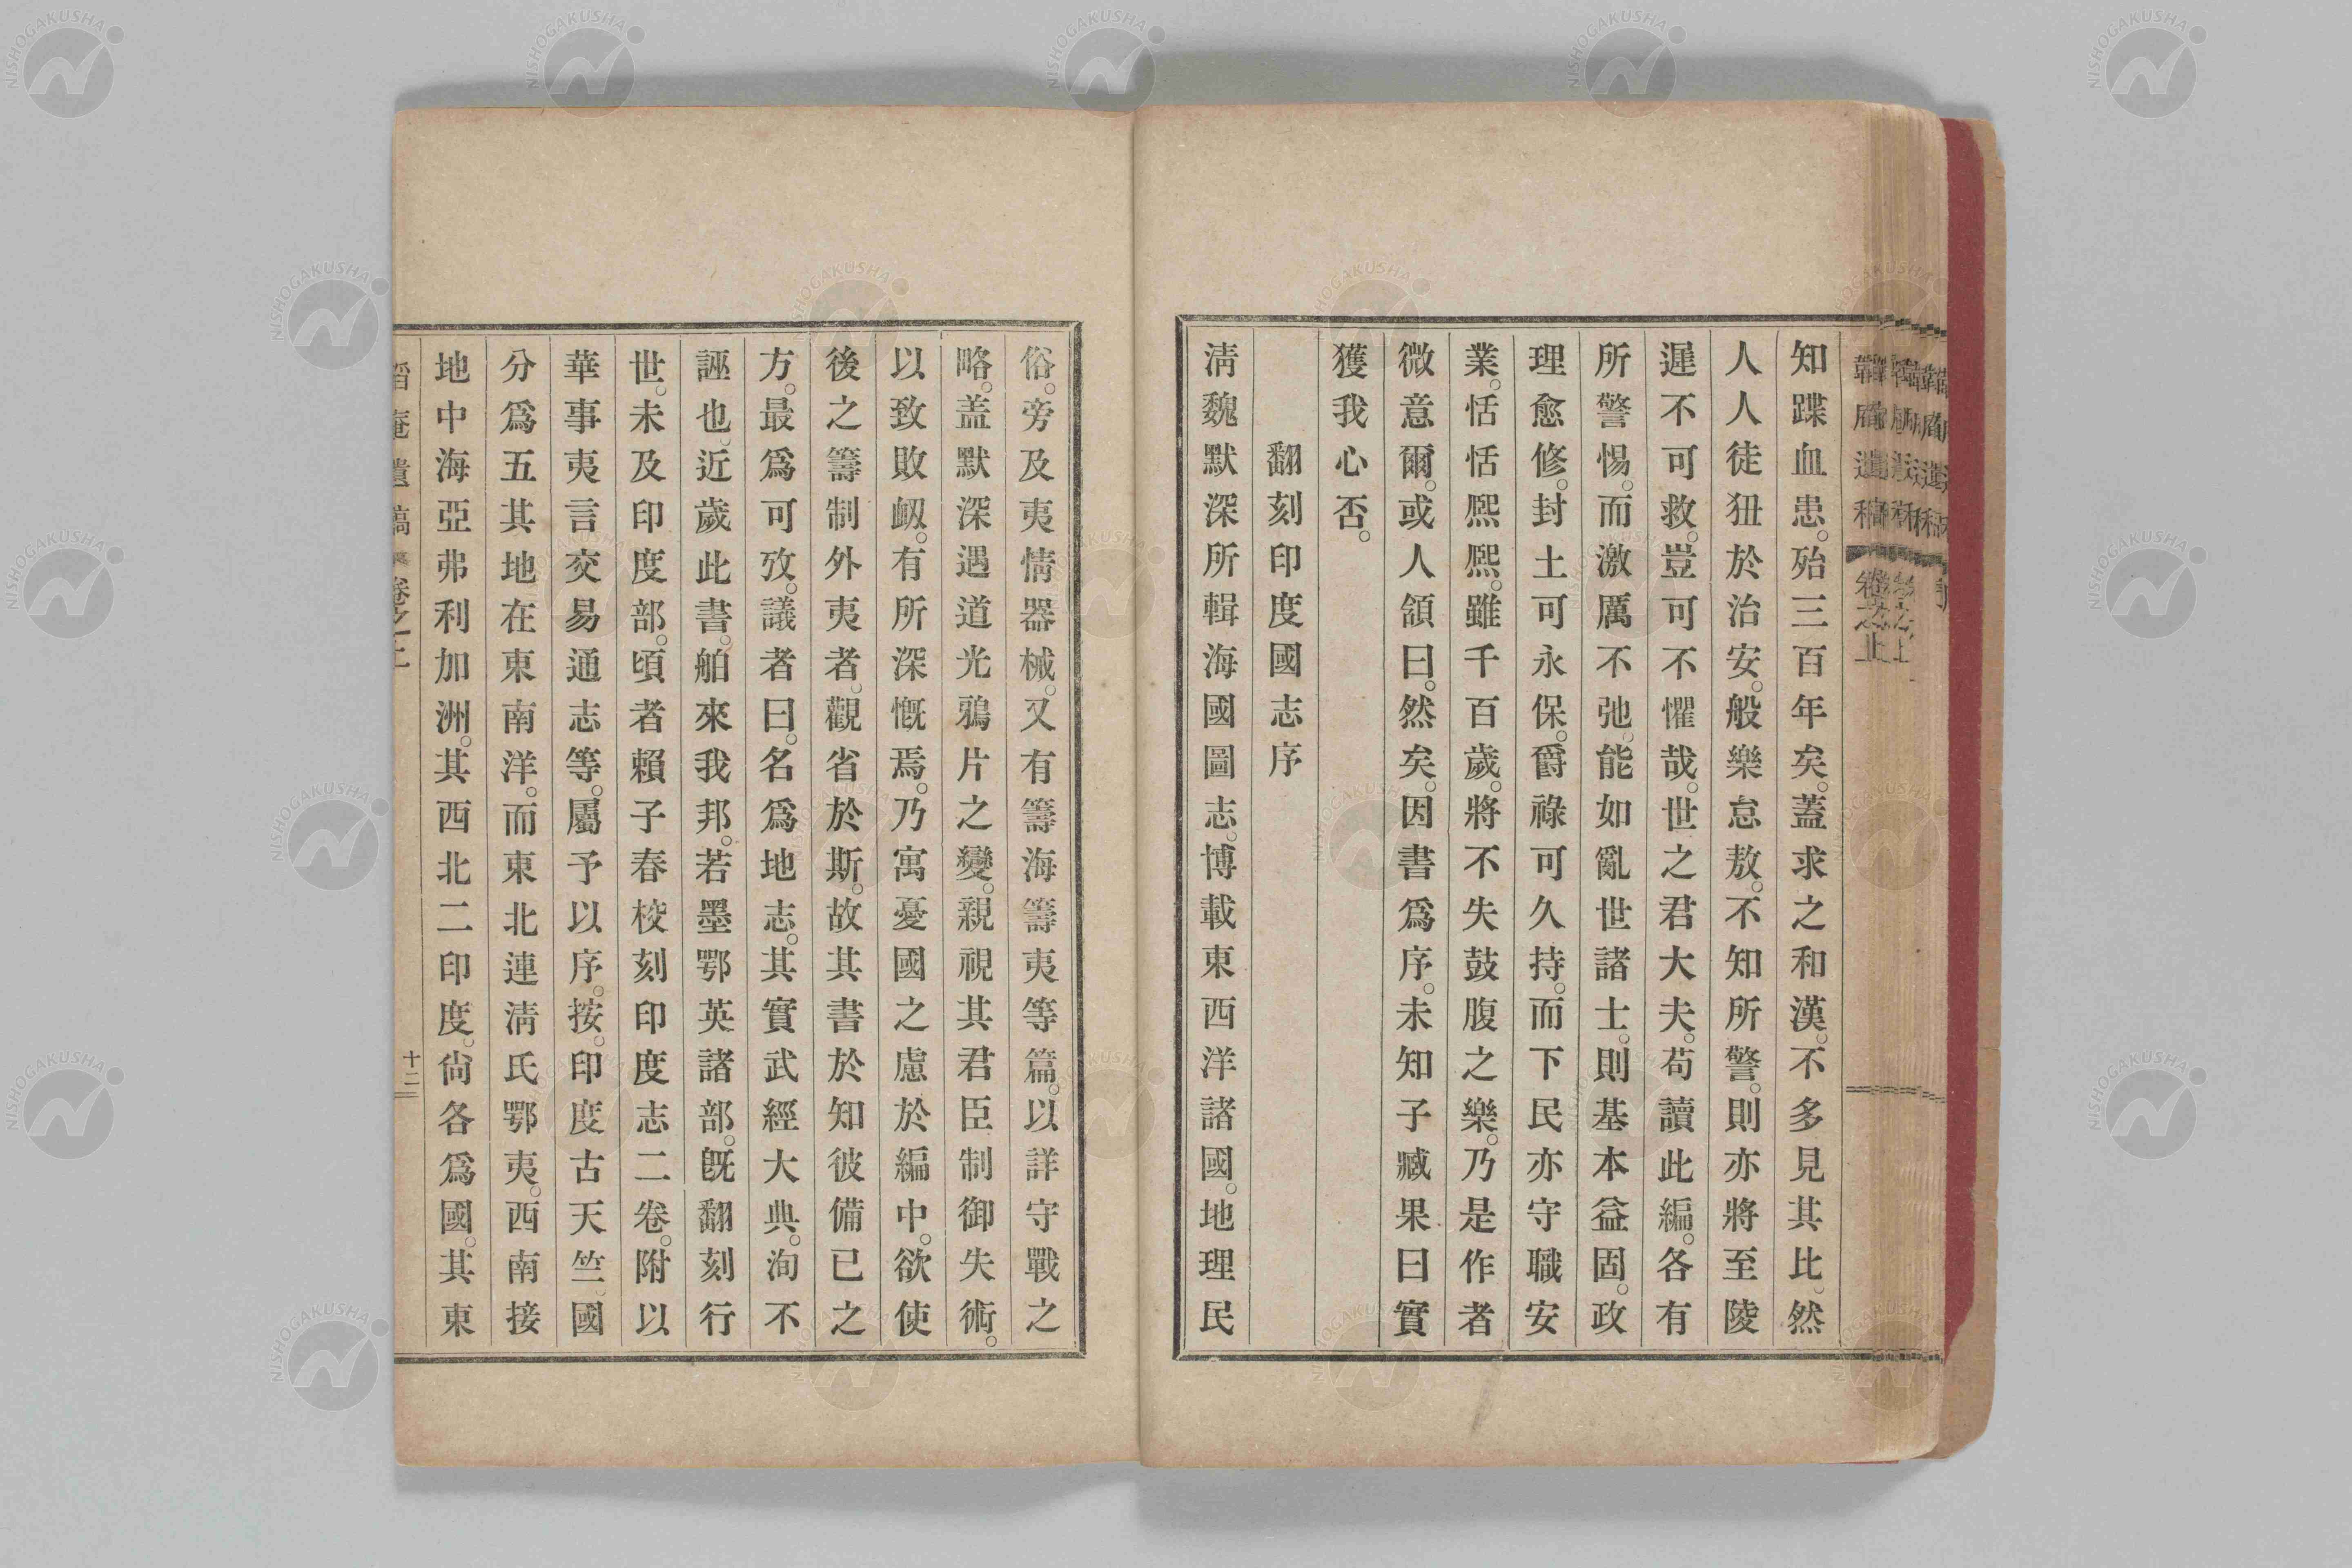 知蹀血患。殆三百年矣。蓋求之和漢。不多見其比。然
人人徒狃於治安。般樂怠敖。不知所警。則亦將至陵
遲不可救。豈可不懼哉。世之君大夫。苟讀此編。各有
所警惕。而激厲不弛。能如亂世諸士。則基本益固。政
理愈修。封土可永保。爵祿可久持。而下民亦守職安
業。恬恬熈熈。雖千百歲。將不失鼓腹之樂。乃是作者
微意爾。或人頷曰。然矣。因書爲序。未知子臧果曰實
獲我心否。
翻刻印度國志序
淸魏默深所輯海國圖志。博載東西洋諸國。地理民
俗。旁及夷情器械。又有籌海籌夷等篇。以詳守戰之
略。盖默深遇道光鴉片之變。親視其君臣制御失術。
以致敗衂。有所深慨焉。乃寓憂國之慮於編中。欲使
後之籌制外夷者。觀省於斯。故其書於知彼備已之
方。最爲可攷。議者曰。名爲地志。其實武經大典。洵不
誣也。近歲此書。舶來我邦。若墨鄂英諸部。旣翻刻行
世。未及印度部。頃者賴子春校刻印度志二卷。附以
華事夷言交易通志等。屬予以序。按。印度古天竺。國
分爲五其地在東南洋。而東北連淸氏鄂夷。西南接
地中海亞弗利加洲。其西北二印度。尙各爲國。其東
庵遺稿 卷之上
十二
NISHOGAKUSHA